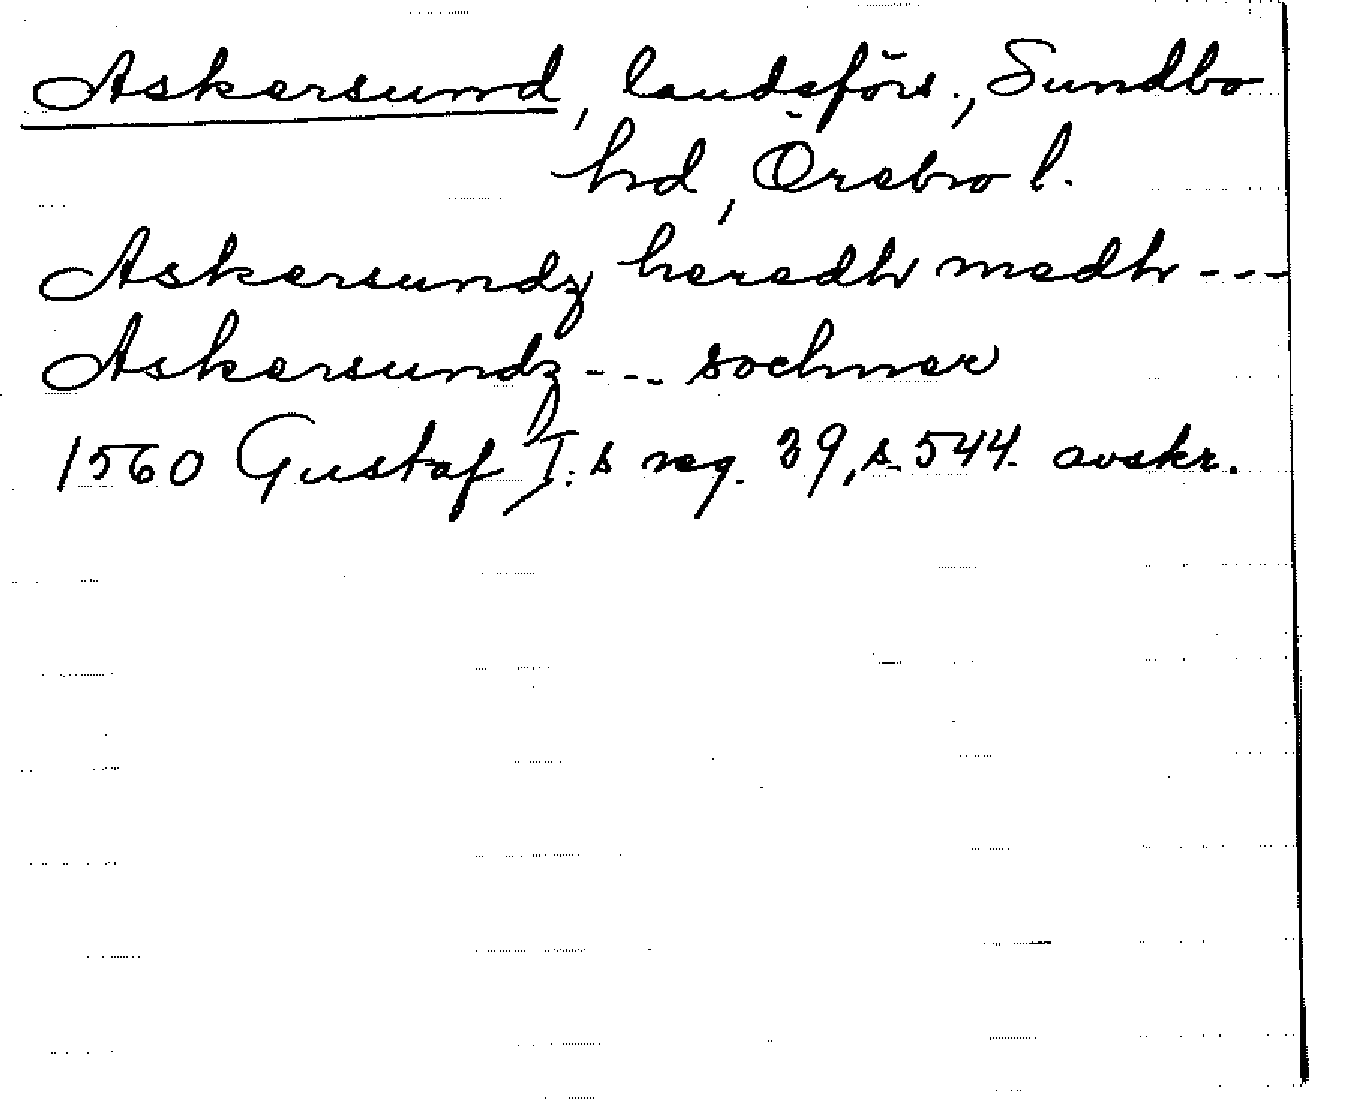 Askersund, landsförs., Sundbo
hd, Örebro l.
Askersundz heredh medh ---
Askersundz --- sochner
1560 Gustaf I:s reg. 29, s. 544. avskr.